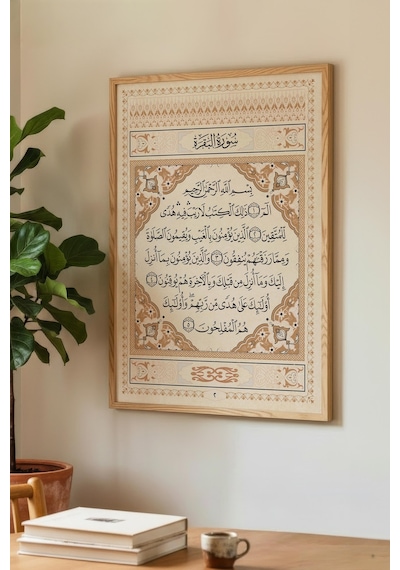 سُورَةُ البَقَرَةِ
بِسْمِ اللَّهِ الرَّحْمَٰنِ الرَّحِيمِ
الٓمٓ ١ ذَٰلِكَ الْكِتَابُ لَا رَيْبَ ۛ فِيهِ ۛ هُدًى
لِّلْمُتَّقِينَ ٢ الَّذِينَ يُؤْمِنُونَ بِالْغَيْبِ وَيُقِيمُونَ الصَّلَاةَ
وَمِمَّا رَزَقْنَاهُمْ يُنفِقُونَ ٣ وَالَّذِينَ يُؤْمِنُونَ بِمَا أُنزِلَ
إِلَيْكَ وَمَا أُنزِلَ مِن قَبْلِكَ وَبِالْآخِرَةِ هُمْ يُوقِنُونَ ٤
أُولَٰئِكَ عَلَىٰ هُدًى مِّن رَّبِّهِمْ ۖ وَأُولَٰئِكَ
هُمُ الْمُفْلِحُونَ ٥
٢